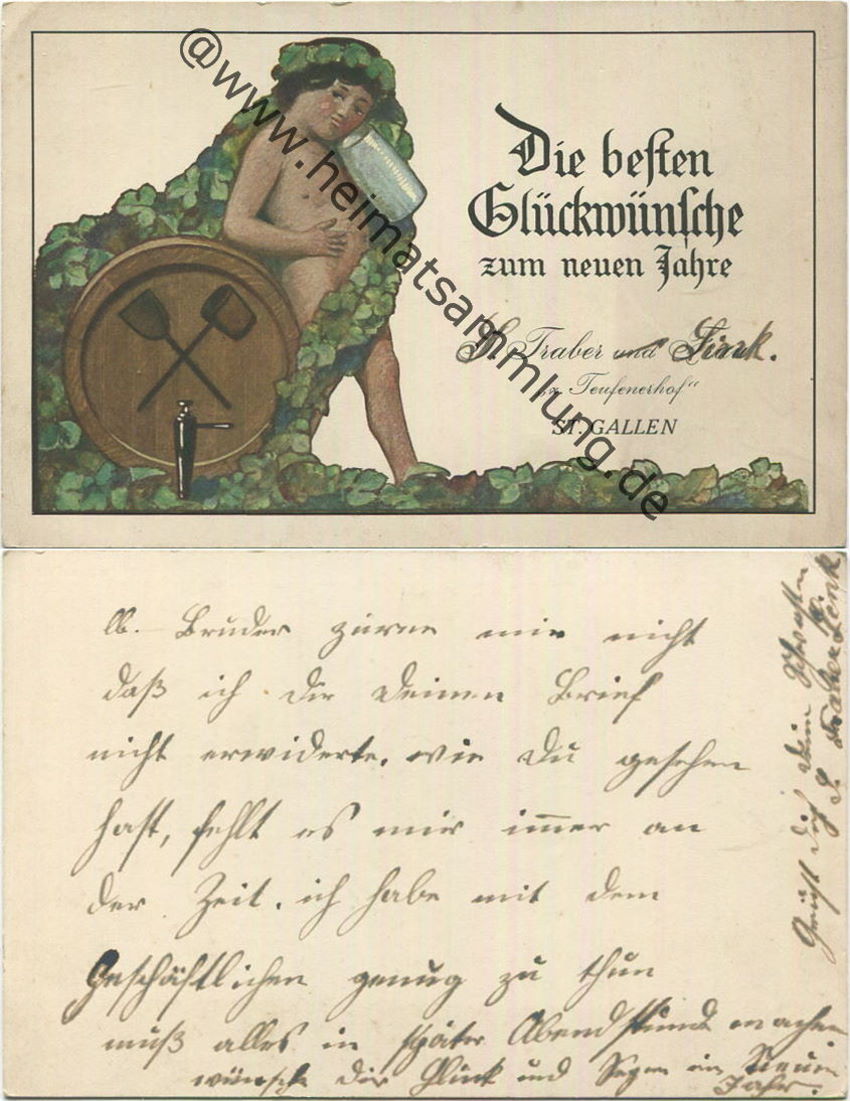 Die besten
Glückwünsche
zum neuen Jahre
Traber und Link.
z. Teufenerhof"
ST. GALLEN
@www.heimatsammlung.de
lb. Bruder zürne mir nicht
daß ich dir Deinen Brief
nicht erwiderte. wie Du gesehen
hast, fehlt es mir immer an
der Zeit. ich habe mit dem
Geschäftlichen genug zu thun
muß alles in später Abendstunde machen
wünsche dir Glück und Segen im Neuen
Jahr.
Grüßt dich dein Schwester
Traber Link